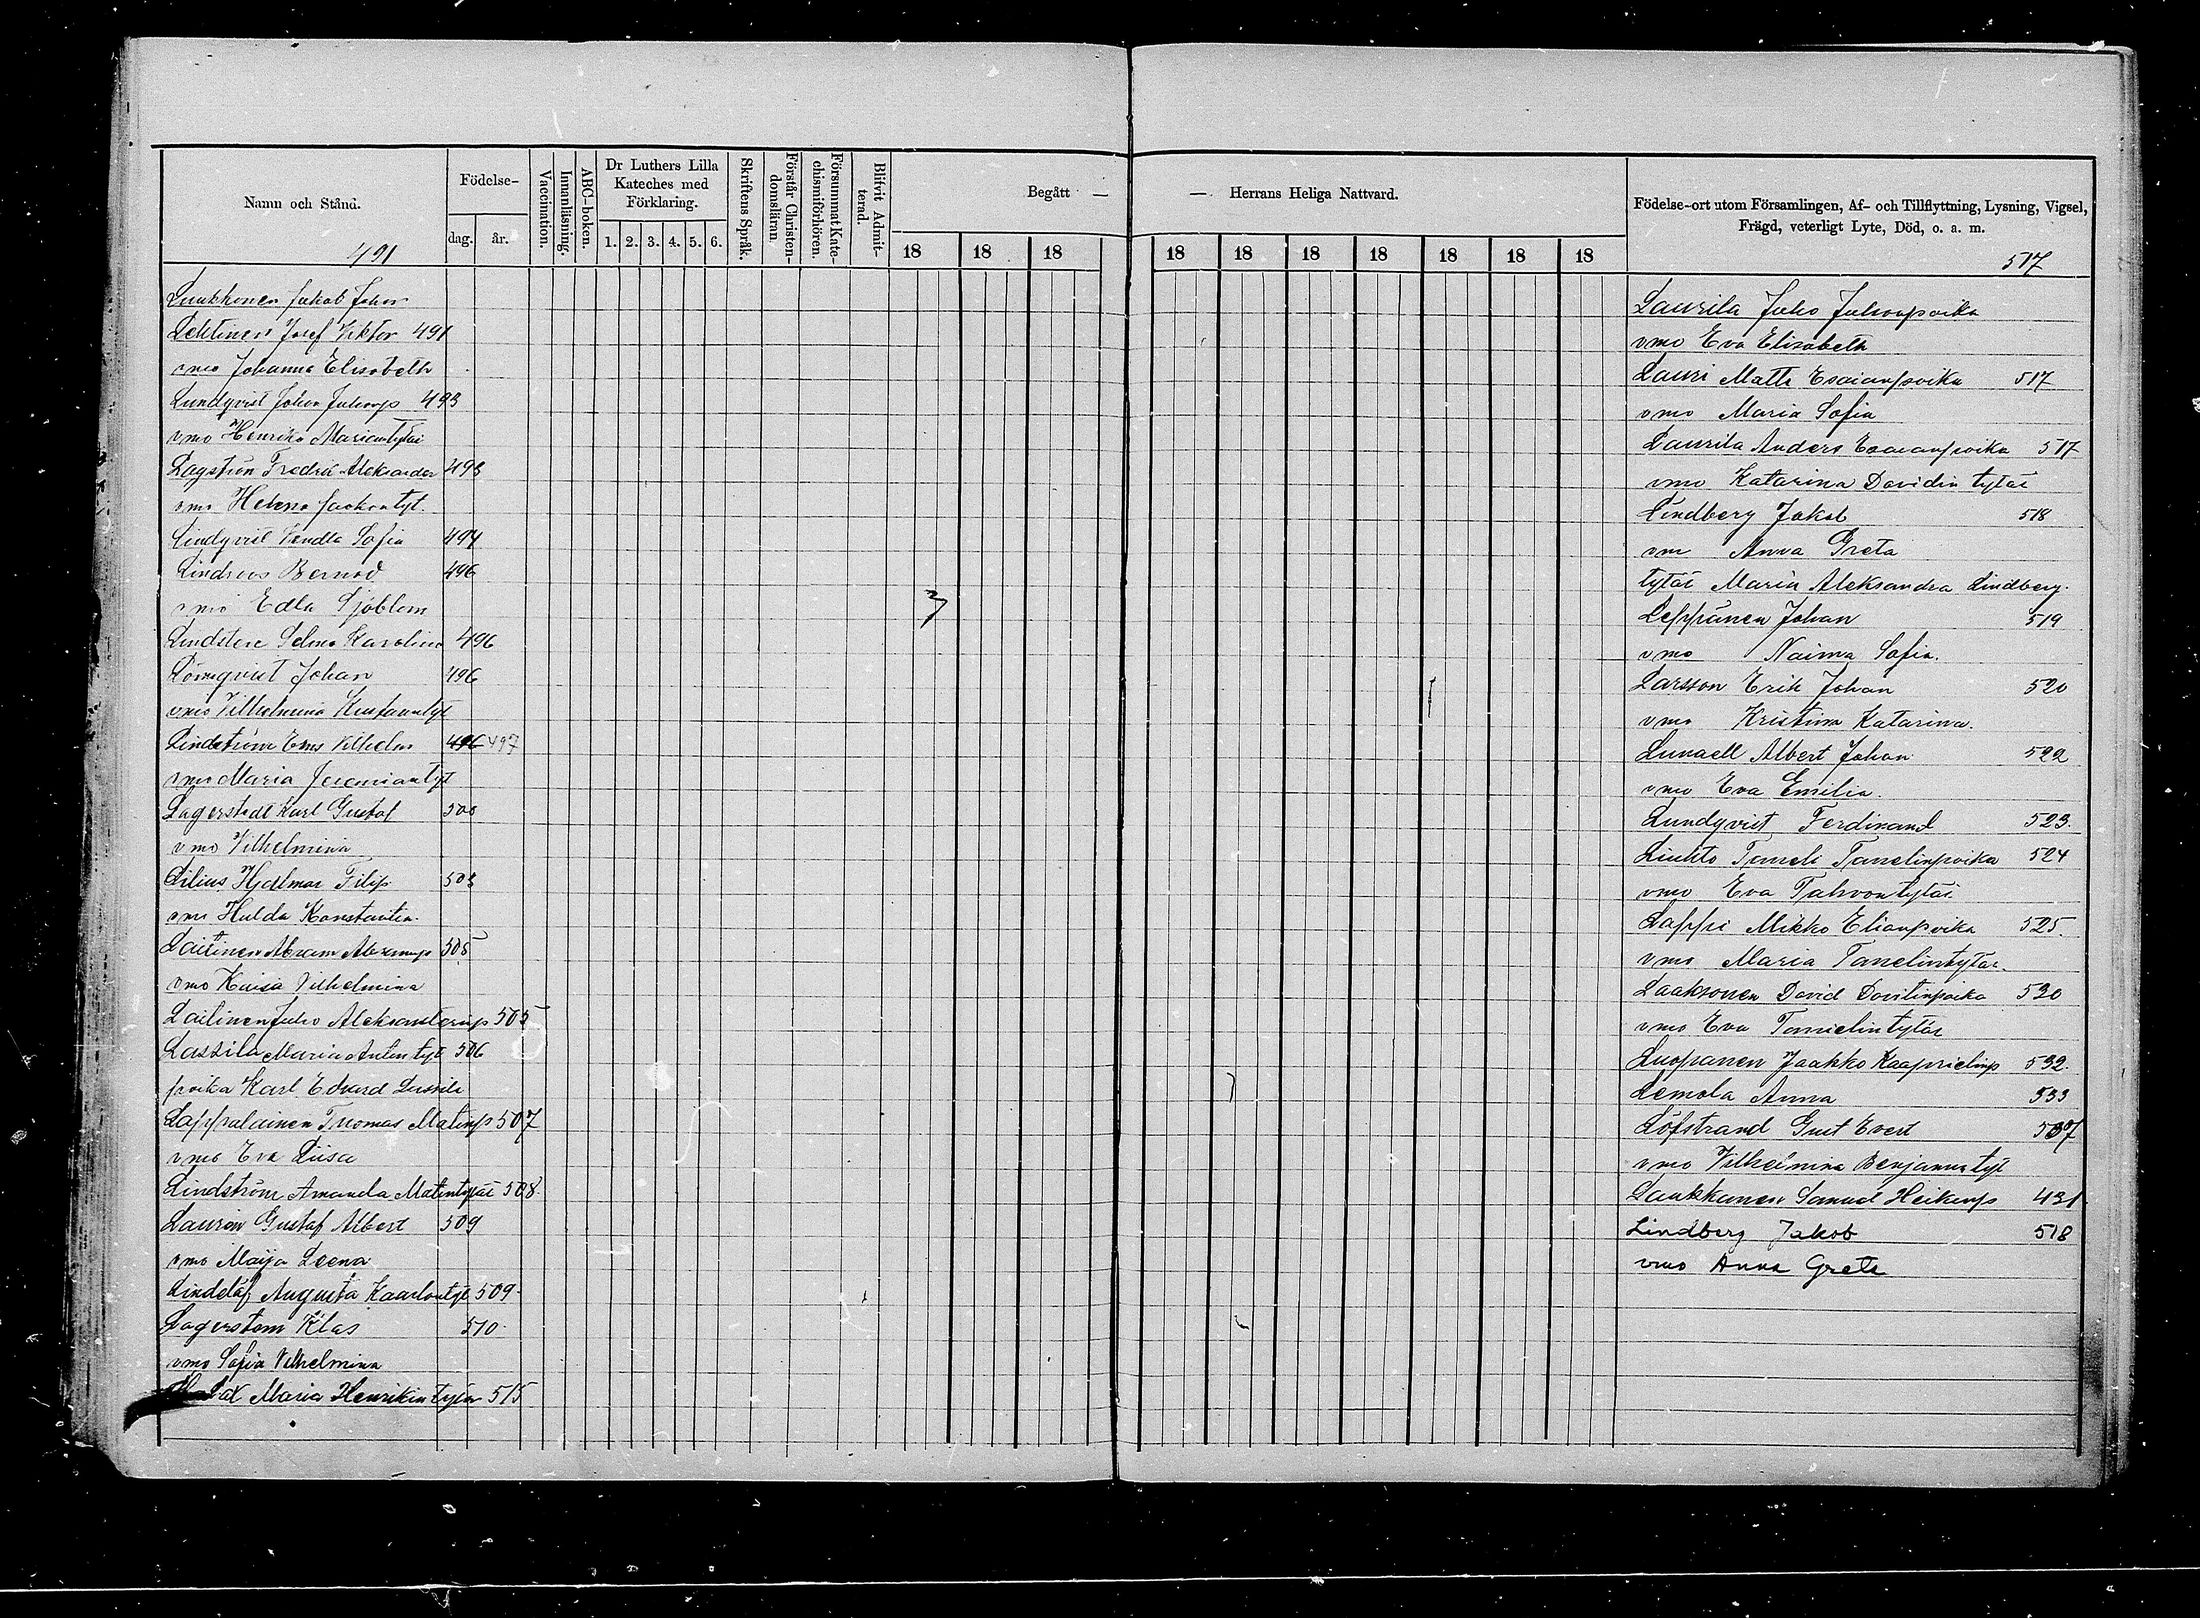 Namn och Stånd.
491
Födelse-
dag.
år.
Vaccination.
Innanläsning.
ABC-boken.
Dr Luthers Lilla
Kateches med
Förklaring.
1. 2. 3. 4. 5. 6.
Skriftens Språk.
Förstår Christen-
domsläran.
Försummat Kate-
chismiförhören.
Blifvit Admit-
terad.
Begått —
18 18 18
Laukkonen Jakob Johan
Lehtinen Josef Viktor 491
vmo Johanna Elisabeth
Lundqvist Johan Juhonp 493
vmo Henrika Mariantytär
Lagström Fredrik Aleksander 493
vmo Helena Jaakontyt.
Lindqvist Vendla Sofia 494
Lindroos Bernod 496
vmo Edla Sjöblom
Lindsten Selma Karolina 496
Lönnqvist Johan 496
vmo Vilhelmina Kustaantyt
Lindström Ems Vilhelm 496 497
vmo Maria Jeremiantyt
Lagerstedt Karl Gustaf 500
vmo Vilhelmina
Lilius Hjalmar Filip 503
vmo Hulda Konstantia
Laitinen Abram Abramp 505
vmo Kaisa Vilhelmina
Laitinen Juho Aleksanterinp 505
Lassila Maria Antintyt 506
poika Karl Edvard Lassila
Lappalainen Thomas Matinp 507
vmo Eva Liisa
Lindström Amanda Matintytär 508
Laurén Gustaf Albert 509
vmo Maija Leena
Lindelöf Augusta Kaarlontyt 509
Lagerstam Klas 510
vmo Sofia Vilhelmina
Maria Henrikintytär 515
— Herrans Heliga Nattvard.
18 18 18 18 18 18 18
Födelse-ort utom Församlingen, Af- och Tillflyttning, Lysning, Vigsel,
Frägd, veterligt Lyte, Död, o. a. m.
517
Laurila Juho Juhonpoika
vmo Eva Elisabeth
Lauri Matti Esaianpoika 517
vmo Maria Sofia
Laurila Anders Esaianpoika 517
vmo Katarina Davidin tytär
Lindberg Jakob 518
vm Anna Greta
tytär Maria Aleksandra Lindberg.
Leppänen Johan 519
vmo Naima Sofia.
Larsson Erik Johan 520
vmo Kristina Katarina.
Lunaell Albert Johan 522
vmo Eva Emilia.
Lundqvist Ferdinand 523.
Liuhto Taneli Tanelinpoika 524
vmo Eva Tahvontytär
Lappi Mikko Elianpoika 525.
vmo Maria Tanelintytär.
Laaksonen David Davidinpoika 530
vmo Eva Tanielintytär
Luopanen Jaakko Kaaprielinp 532.
Lemola Anna 533
Löfstrand Gust Evert 507
vmo Vilhelmina Benjamintyt
Laukkanen Samuel Heikinp 431
Lindberg Jakob 518
vmo Anna Greta